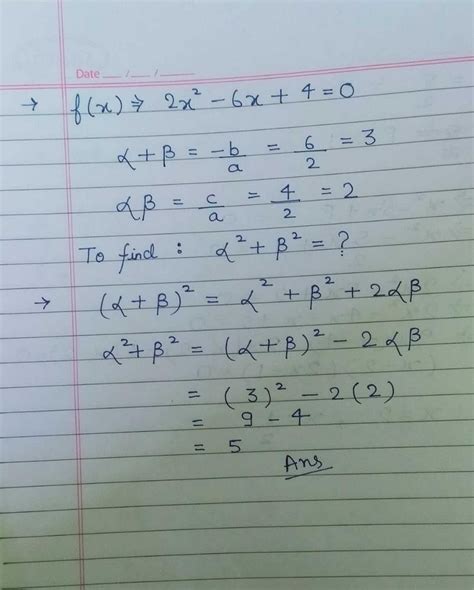 Date __ / __ / ____
→ f(x) ⇒ 2x² - 6x + 4 = 0
α + β = -b/a = 6/2 = 3
αβ = c/a = 4/2 = 2
To find : α² + β² = ?
→ (α + β)² = α² + β² + 2αβ
α² + β² = (α + β)² - 2αβ
= (3)² - 2(2)
= 9 - 4
= 5
Ans